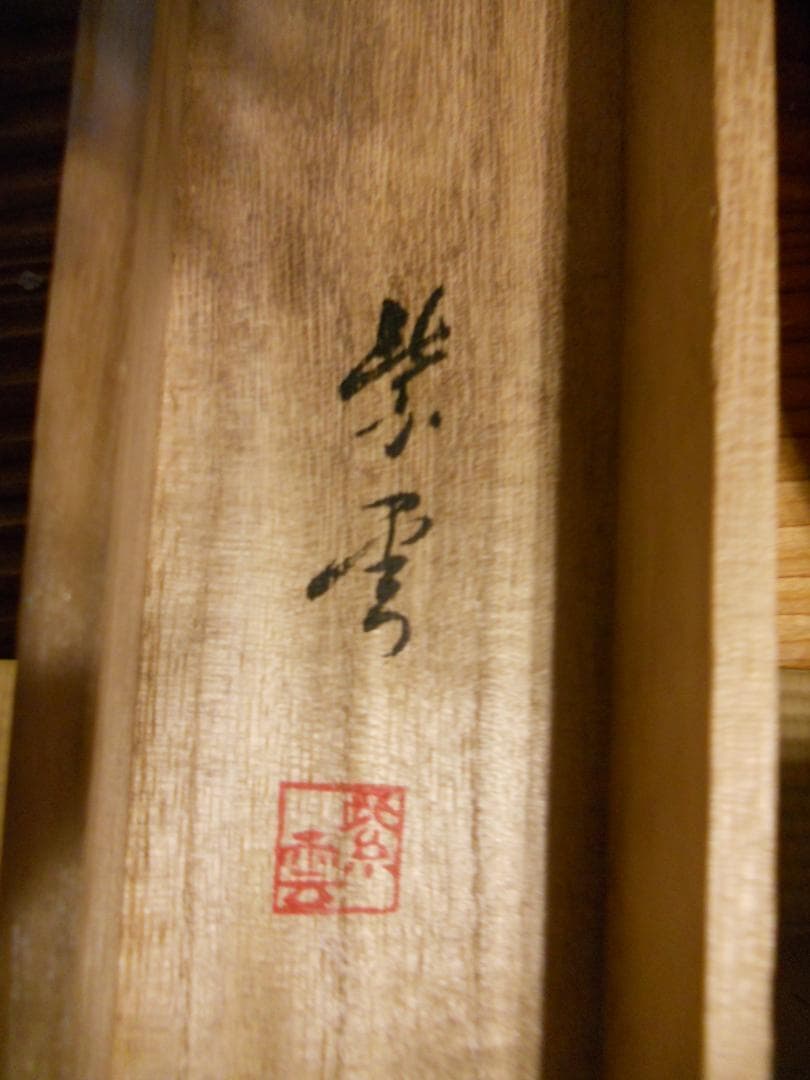 紫雲
紫雲